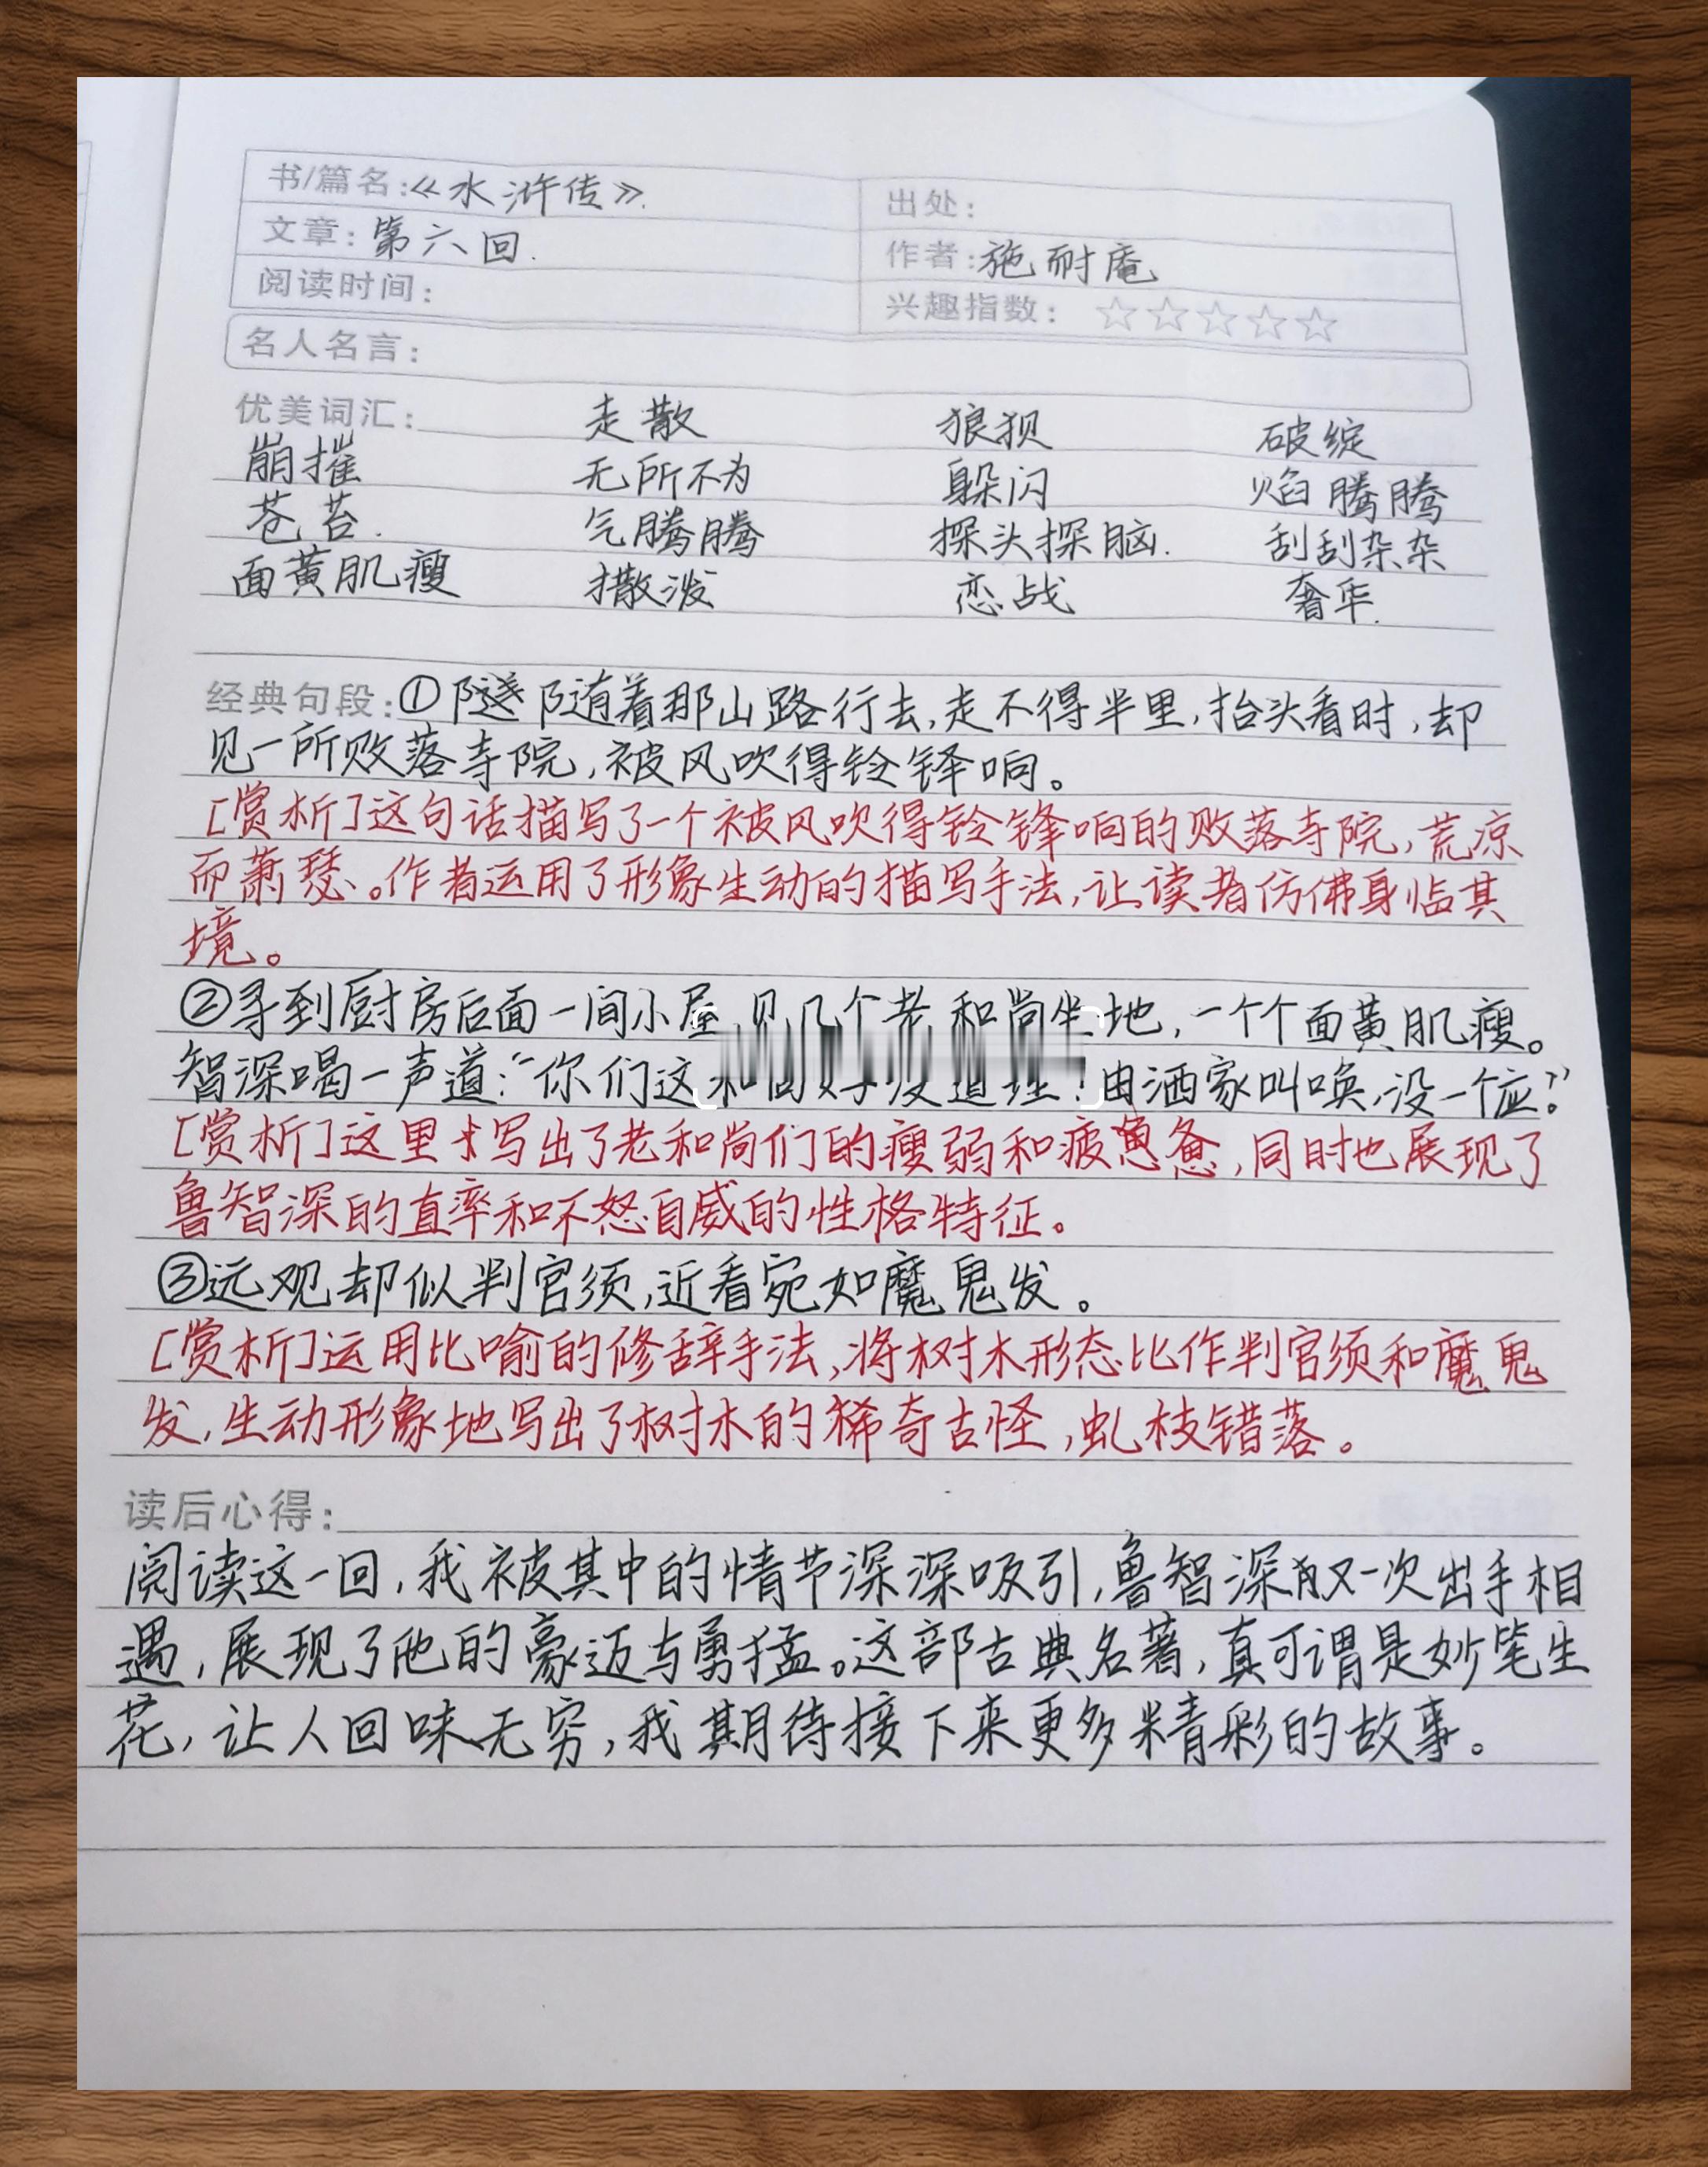 书/篇名:《水浒传》.
出处:
文章:第六回.
作者:施耐庵
阅读时间:
兴趣指数: ☆☆☆☆☆
名人名言:
优美词汇: 走散 狼狈 破绽
崩摧 无所不为 躲闪 焰腾腾
苍苔. 气腾腾 探头探脑. 刮刮杂杂
面黄肌瘦 撒泼 恋战 奢华.
经典句段:①随着那山路行去,走不得半里,抬头看时,却
见一所败落寺院,被风吹得铃铎响。
[赏析]这句话描写了一个被风吹得铃锋响的败落寺院,荒凉
而萧瑟。作者运用了形象生动的描写手法,让读者仿佛身临其
境。
②寻到厨房后面一间小屋,见几个老和尚坐地,一个个面黄肌瘦。
智深喝一声道:“你们这和尚好没道理!由洒家叫唤,没一个应?”
[赏析]这里写出了老和尚们的瘦弱和疲惫,同时也展现了
鲁智深的直率和不怒自威的性格特征。
③远观却似判官须,近看宛如魔鬼发。
[赏析]运用比喻的修辞手法,将树木形态比作判官须和魔鬼
发,生动形象地写出了树木的稀奇古怪,虬枝错落。
读后心得:
阅读这一回,我被其中的情节深深吸引,鲁智深又一次出手相
遇,展现了他的豪迈与勇猛。这部古典名著,真可谓是妙笔生
花,让人回味无穷,我期待接下来更多精彩的故事。